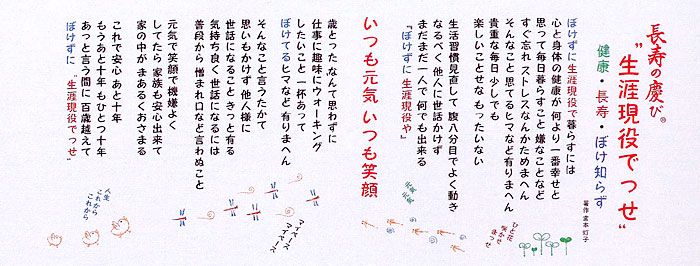 長寿の慶び®
"生涯現役でっせ"
健康・長寿・ぼけ知らず
著作
ぼけずに生涯現役で暮らすには
心と身体の健康が 何より一番幸せと
思って毎日暮らすこと 嫌なことなど
すぐ忘れ ストレスなんかためまへん
そんなこと 思てるヒマなど有りまへん
貴重な毎日 少しでも
楽しいことせな もったいない
ひと花
生活習慣見直して 腹八分目でよく動き
なるべく 他人に世話かけず
まだまだ一人で 何でも出来る
「ぼけずに 生涯現役や」
元気
元気
いつも元気 いつも笑顔
歳とった、なんて思わずに
仕事に趣味にウォーキング
したいこと 一杯あって
ぼけてるヒマなど 有りまへん
マイペース
マイペース
そんなこと言うたかて
思いもかけず 他人様に
世話になること きっと有る
気持ち良く 世話になるには
普段から 憎まれ口など 言わぬこと
元気で笑顔で機嫌よく
してたら 家族も安心出来て
家の中が まあるくおさまる
これで安心 あと十年
もうあと十年 もひとつ十年
あっと言う間に 百歳越えて
ぼけずに "生涯現役でっせ"
人生
これから
これから